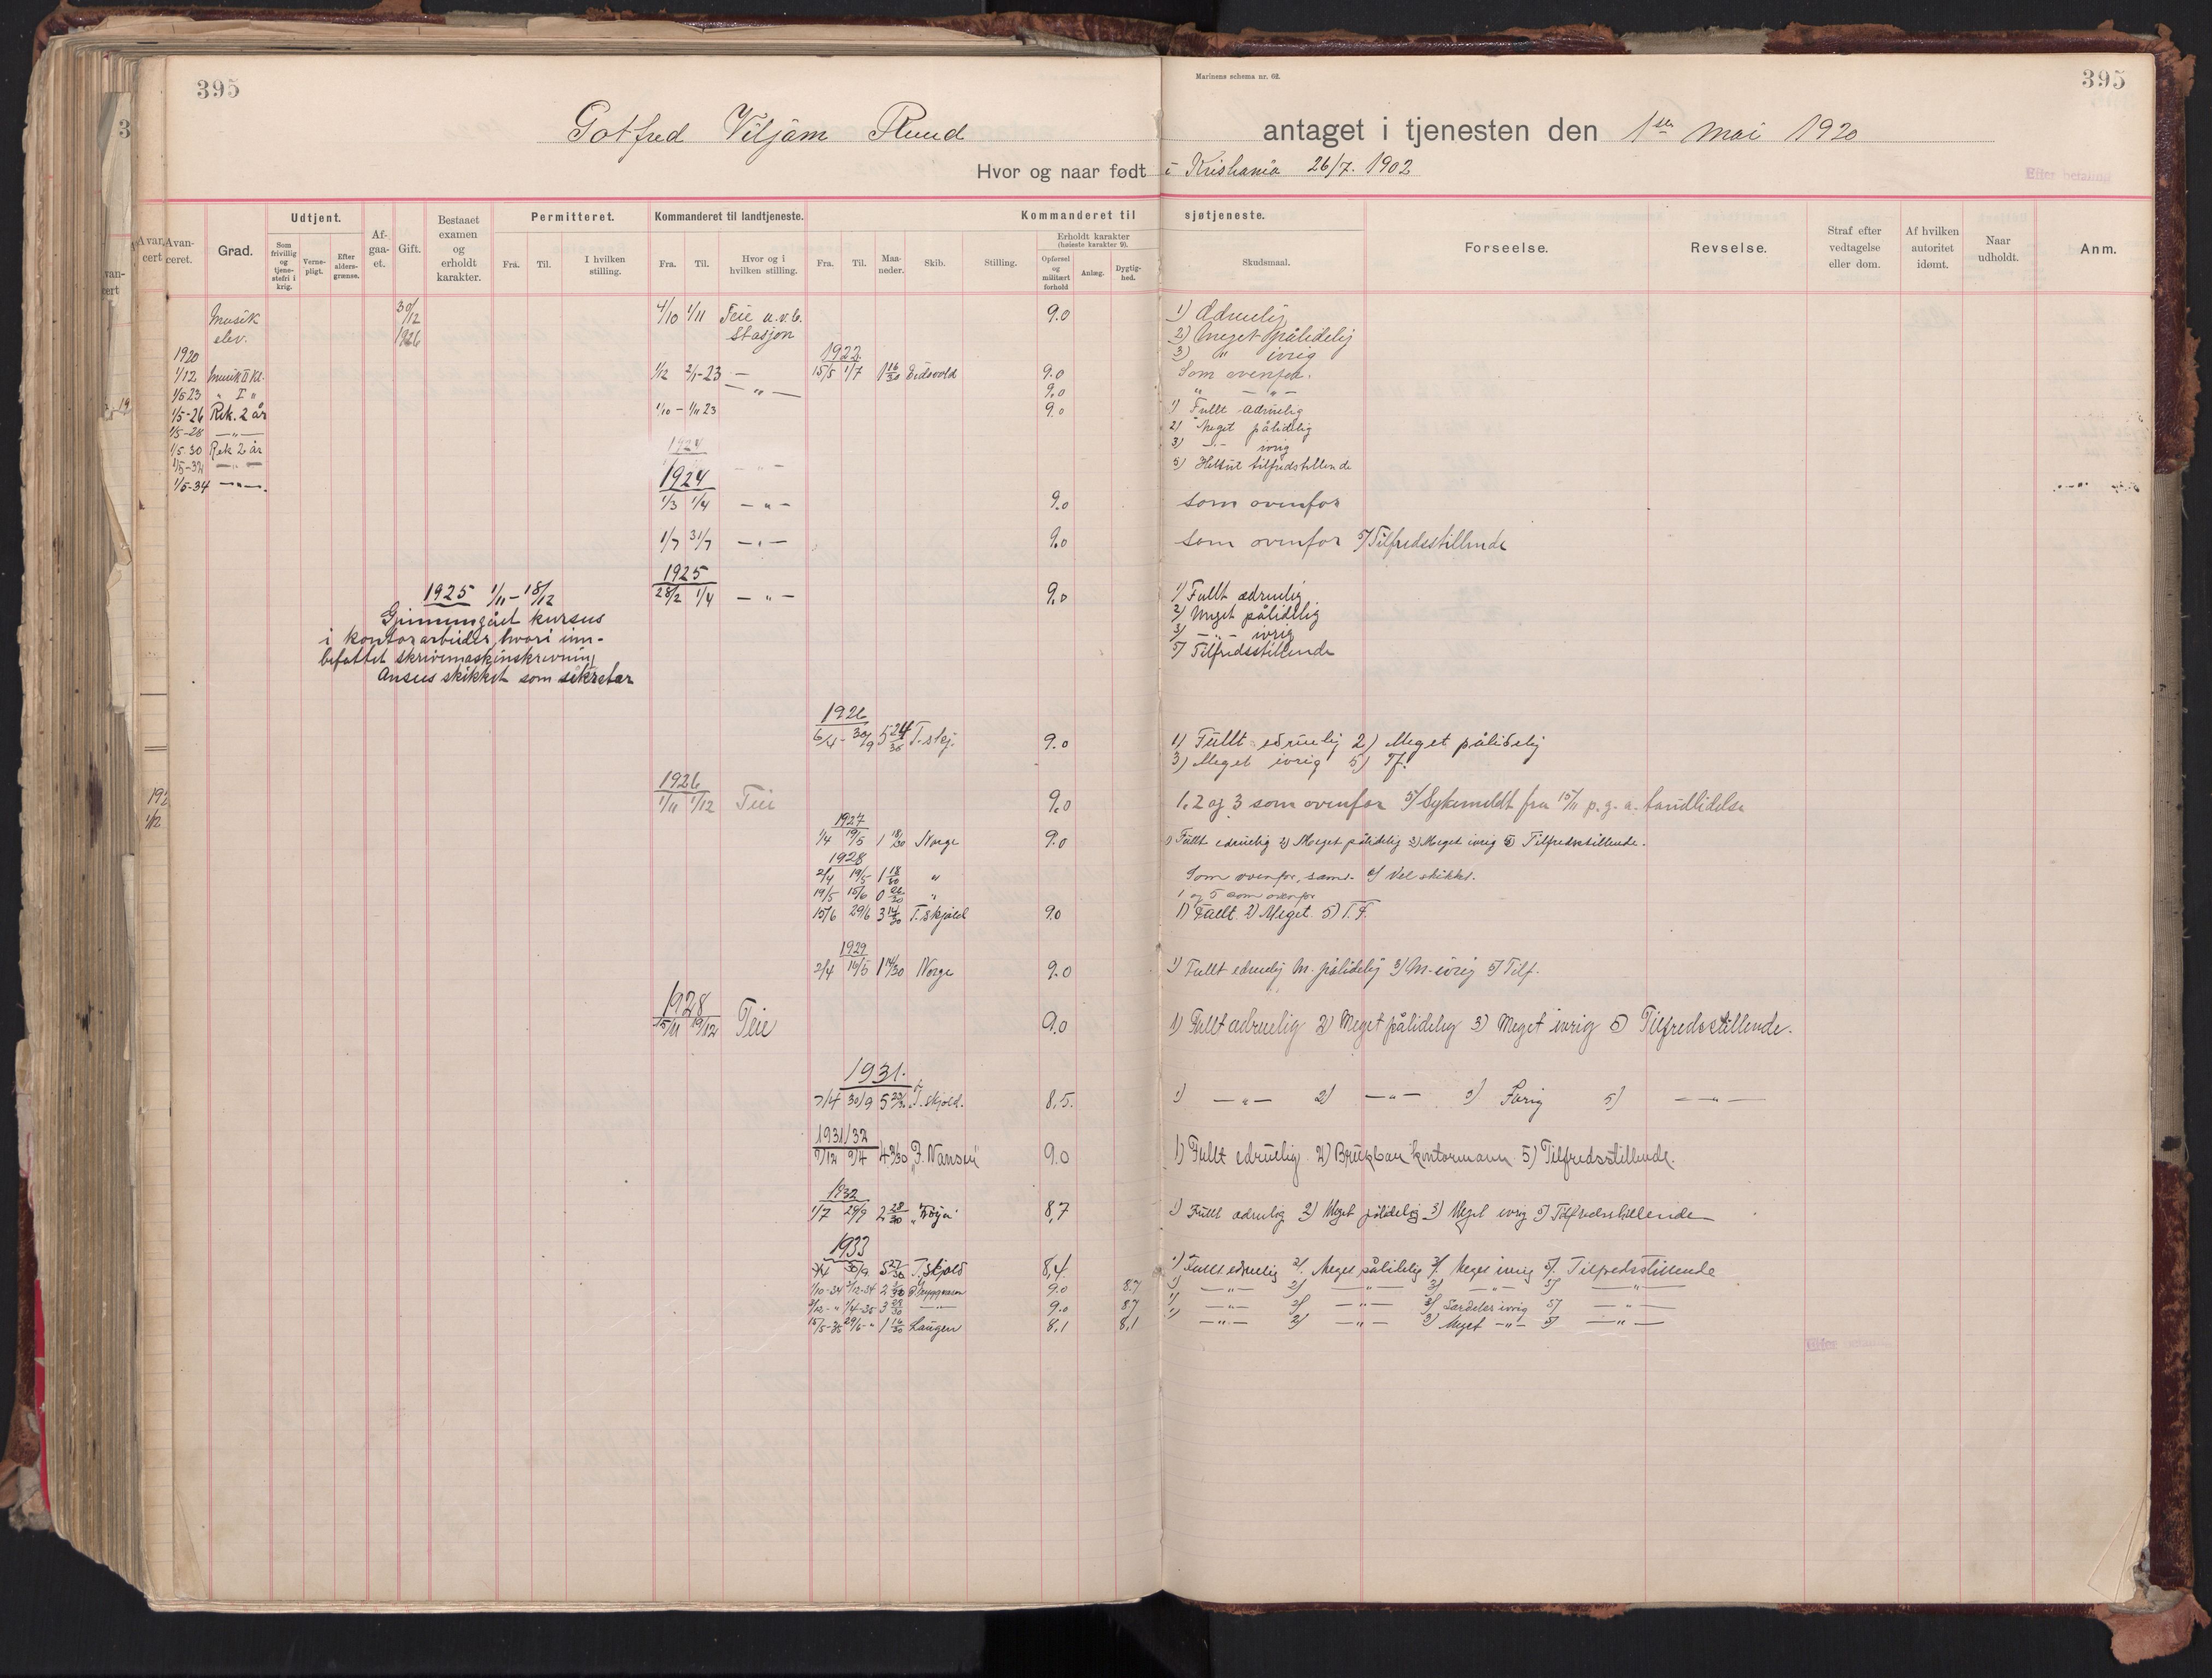 395
Marinens schema nr. 62.
395
Gotfred Viljam Ruud antaget i tjenesten den 1ste mai 1920
Hvor og naar født i Kristiania 26/7. 1902
Efter betaling
Avancert Avanceret.
Grad.
Udtjent.
Som frivillig og tjenestefri i krig.
Vernepligt.
Efter aldersgrænse.
Afgaaet.
Gift.
Bestaaet examen og erholdt karakter.
Permitteret.
Fra. Til. I hvilken stilling.
Kommanderet til landtjeneste.
Fra. Til. Hvor og i hvilken stilling.
Kommanderet til sjøtjeneste.
Fra. Til. Maaneder. Skib. Stilling.
Erholdt karakter (høieste karakter 9).
Opførsel og militært forhold Anlæg. Dygtighed.
Skudsmaal.
Forseelse.
Revselse.
Straf efter vedtagelse eller dom.
Af hvilken autoritet idømt.
Naar udholdt.
Anm.
Musik elev. 30/12 1926 4/10 1/11 Teie u.v.b. Stasjon 9.0 1) Ædruelig
2) Meget pålidelig
1920 1922 3) " ivrig
1/12 Musik II Kl. 1/12 2/1-23 — 15/5 1/7 1 16/30 Eidsvold 9.0 Som ovenfor.
1/5 23 " I " — " — 9.0 " — " —
1/5-26 Rek. 2 år 1/10 – 1/11 23 9.0 1) Fullt ædruelig
1/5-28 — " — 2) Meget pålidelig
1/5-30 Rek 2 år 1924 3) — " — ivrig
1/5-32 — " — — " — 5) Helt ut tilfredstillende
1/5-34 — " —. 1924
1/3 1/4 — " — 9.0 som ovenfor
1/7 31/7 — " — 9.0 som ovenfor 5) Tilfredsstillende
1925
28/2 1/4 — " — 9.0 1) Fullt ædruelig
2) Meget pålidelig
3) — " — ivrig
5) Tilfredsstillende
1925 1/11 – 18/12
Gjennemgået kursus
i kontorarbeider, hvori inn-
befattet skrivemaskinskrivning
Ansees skikket som sekretær
1926
6/4 - 30/9 5 24/30 T.skj. 9.0 1) Fullt edruelig 2) Meget pålidelig
3) Meget ivrig 5) Tf.
1926
1/11 1/12 Teie 9.0 1, 2 og 3 som ovenfor 5) Sykemeldt fra 15/11 p.g.a. tandlidelse
1927
1/4 19/5 1 18/30 Norge 9.0 1) Fullt edruelig 2) Meget pålidelig 3) Meget ivrig 5) Tilfredsstillende.
1928
2/4 19/5 1 18/30 " Som ovenfor, samt. Vel skikket.
19/5 15/6 0 26/30 " 1 og 5 som ovenfor
15/6 29/6 3 14/30 T.skjold 9.0 1) Fullt. 2) Meget. 5) T.F.
1929
2/4 15/5 1 14/30 Norge 9.0 1) Fullt edruelig M. pålidelig 3) M. ivrig 5) Tilf.
1928
15/11 19/12 Teie 9.0 1) Fullt ædruelig 2) Meget pålidelig 3) Meget ivrig 5) Tilfredsstillende.
1931.
7/4 30/9 T. skjold. 8,5. 1) — " — 2) — " — 3) Ivrig 5) — " —
1931/32
9/12 9/4 "F. Nansen" 9.0 1) Fullt edruelig 2) Brukbar kontormann 5) Tilfredsstillende.
1932
1/7 29/9 2 28/30 "Frøya" 8,7 1) Fullt ædruelig 2) Meget pålidelig 3) Meget ivrig 5) Tilfredsstillende
1933
30/9 5 27/30 T.skjold 8,4. 1) Fullt edruelig 2). Meget pålidelig 3). Meget ivrig 5). Tilfredsstillende
1/10-34 2/12-34 O. Tryggvason 9.0 8.7 1) — " — 2) — " — 3) — " — 5) — " —
2/12- " 1/4-35 3 29/30 — " — 9.0 8.7 1) — " — 2) — " — 3) Særdeles ivrig 5) — " —
15/5-35 29/6- " 1 16/30 Laugen 8,1 8,1 1) — " — 2) — " — 3) Meget — " — 5) — " —
192
1/12